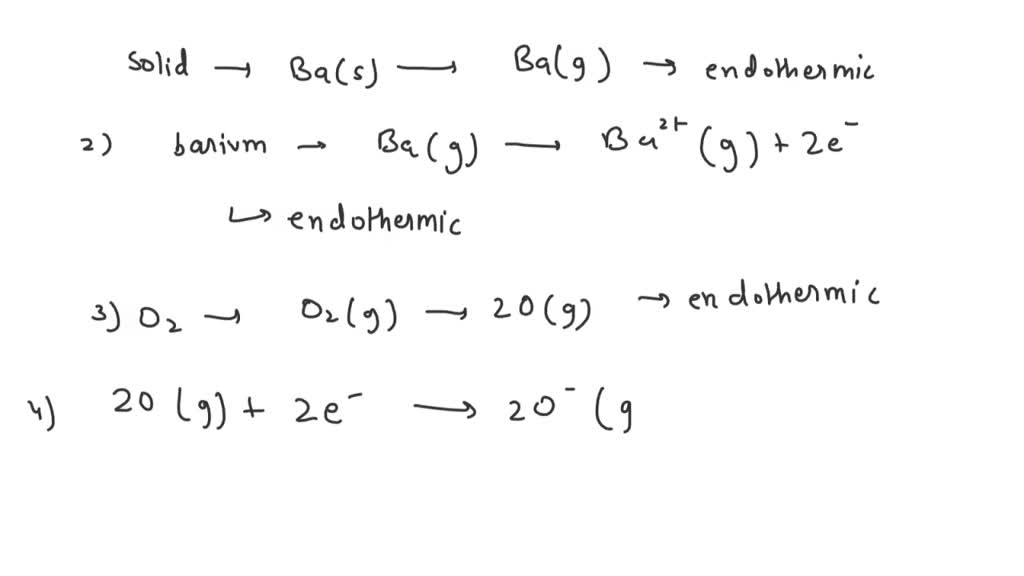 solid → Ba(s) → Ba(g) → endothermic
2) barium → Ba(g) → Ba²⁺(g) + 2e⁻
↳ endothermic
3) O₂ → O₂(g) → 2O(g) → endothermic
4) 2O(g) + 2e⁻ → 2O⁻(g